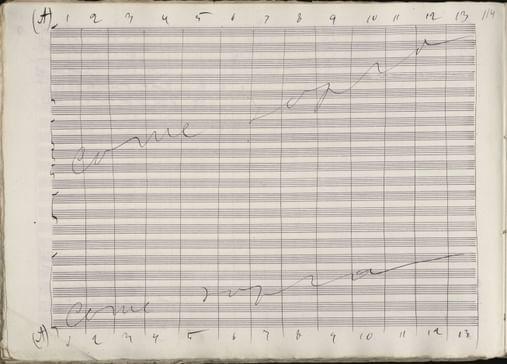 (A) 1 2 3 4 5 6 7 8 9 10 11 12 13 114
come sopra
come sopra
(A) 1 2 3 4 5 6 7 8 9 10 11 12 13